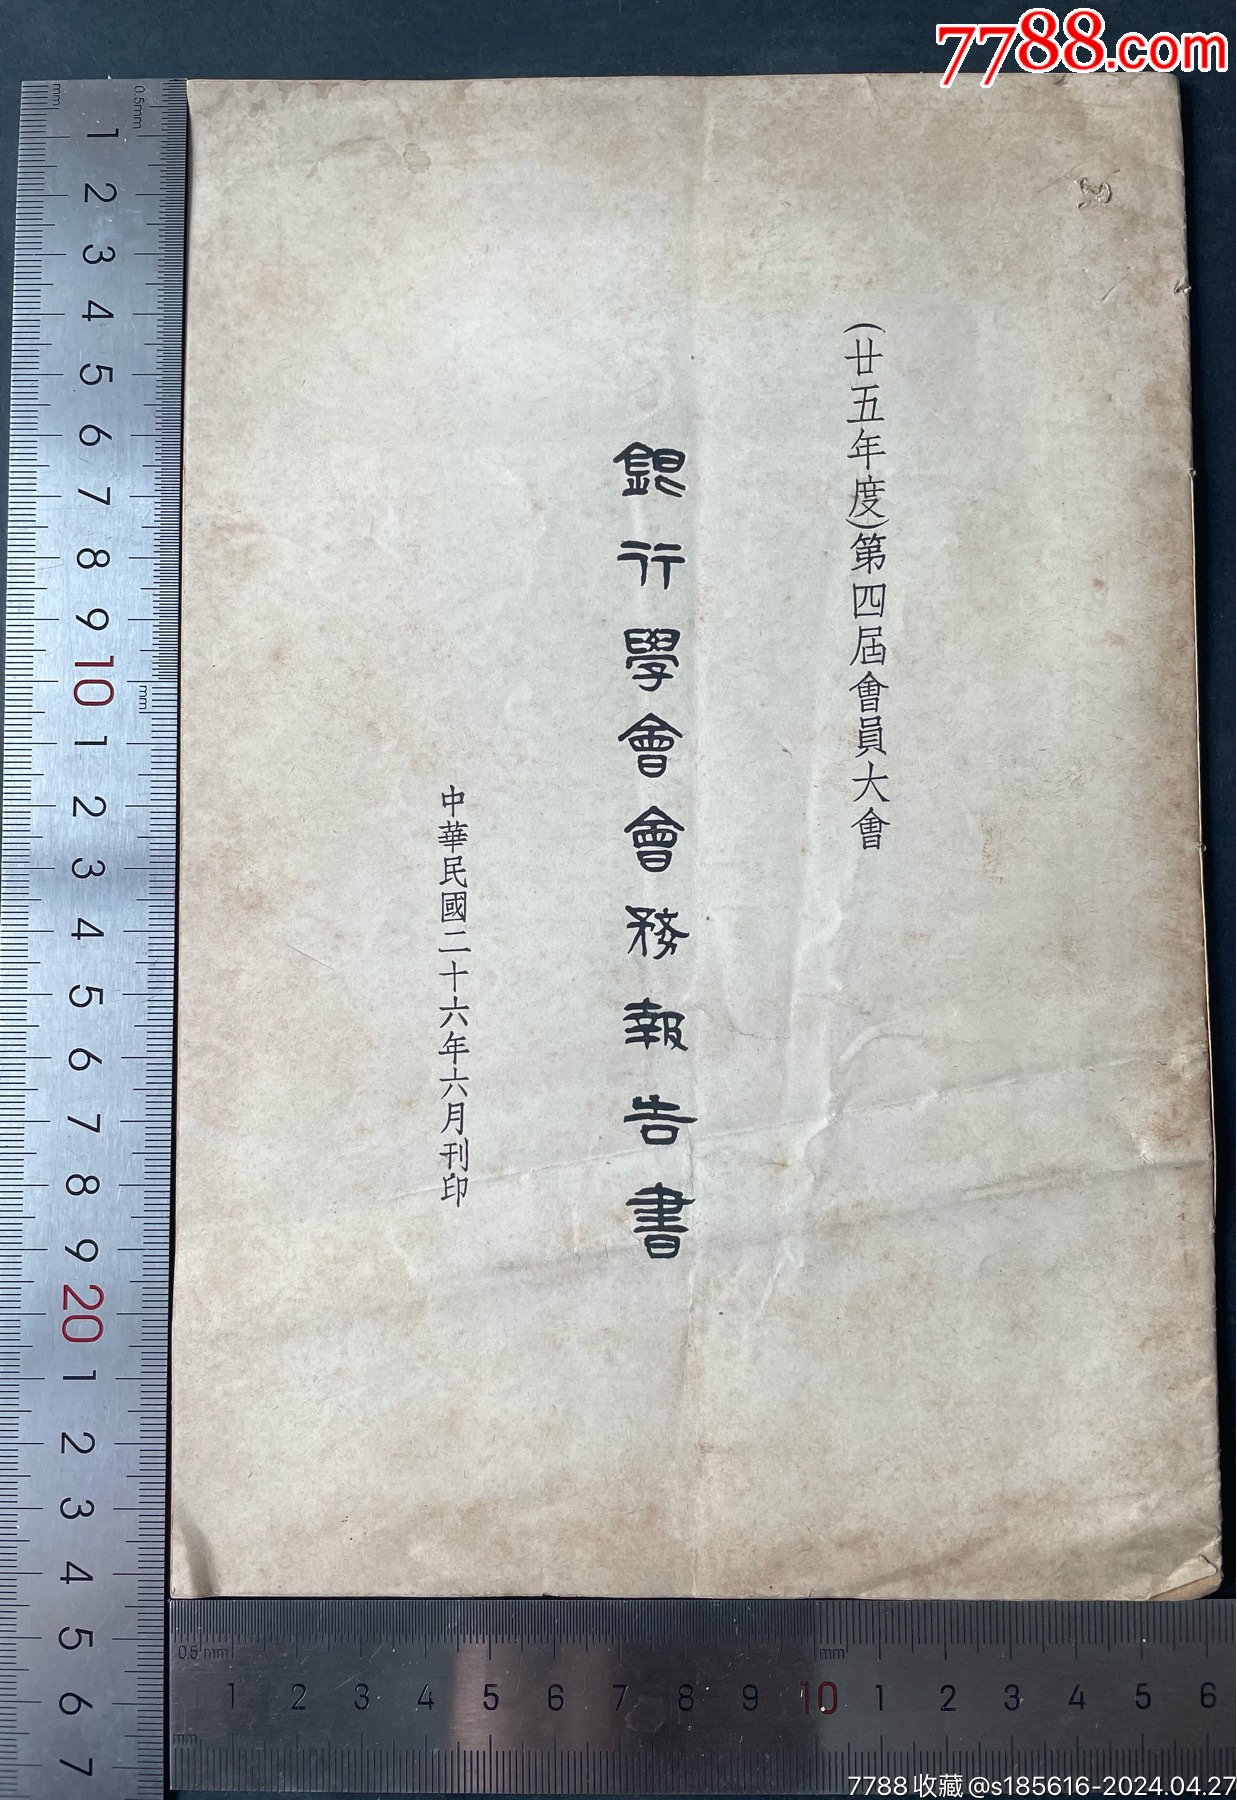 7788.com
(廿五年度)第四屆會員大會
銀行學會會務報告書
中華民國二十六年六月刊印
mm
0.5mm
1
2
3
4
5
6
7
8
9
10
mm
1
2
3
4
5
6
7
8
9
20
1
2
3
4
5
6
7
0.5mm
mm
mm
1 2 3 4 5 6 7 8 9 10 1 2 3 4 5 6
7788收藏@s185616-2024.04.27